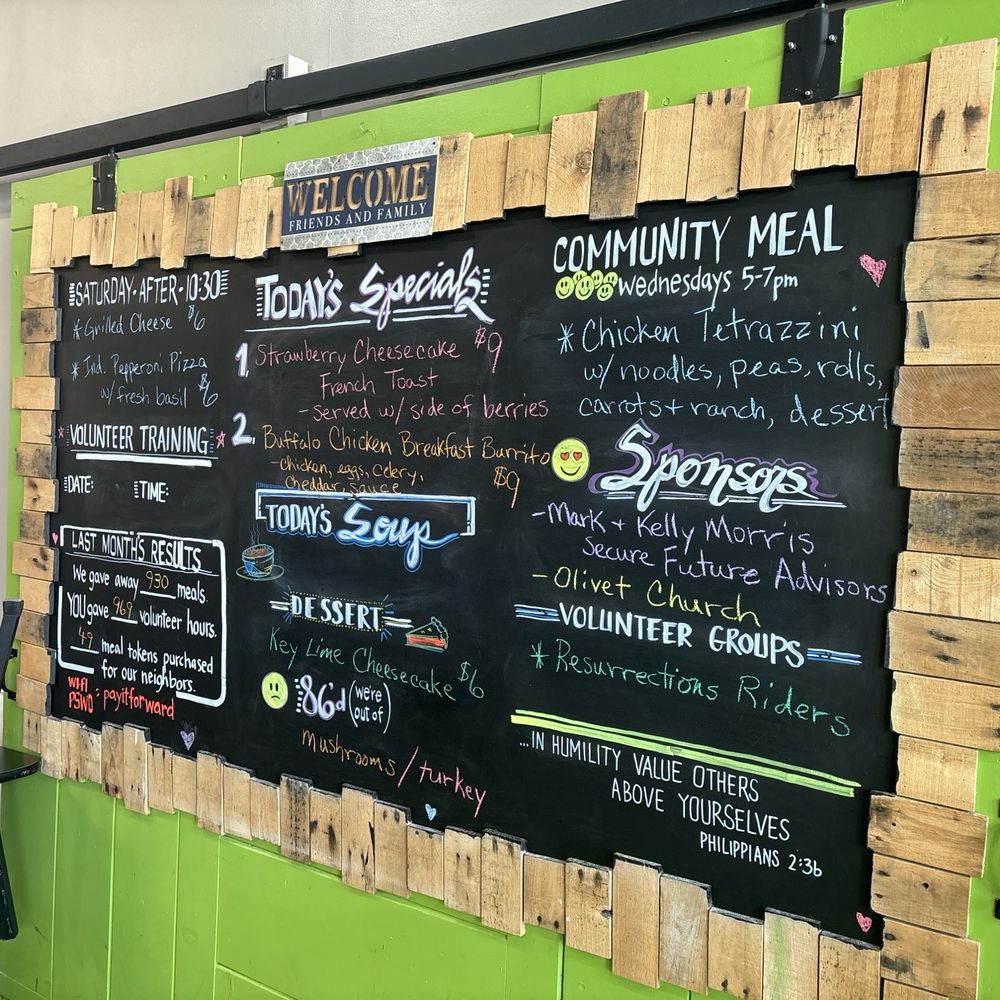 WELCOME
FRIENDS AND FAMILY
SATURDAY-AFTER-10:30
* Grilled Cheese $6
* Ind. Pepperoni Pizza
w/ fresh basil $6
VOLUNTEER TRAINING
DATE: TIME:
LAST MONTH'S RESULTS
We gave away 930 meals.
YOU gave 969 volunteer hours.
49 meal tokens purchased
for our neighbors.
WIFI
PSWD: payitforward
TODAY'S Specials
1. Strawberry Cheesecake $9
French Toast
- served w/ side of berries
2. Buffalo Chicken Breakfast Burrito
- chicken, eggs, celery, $9
cheddar, sauce
TODAY'S Soup
DESSERT
Key Lime Cheesecake $6
86'd (we're
out of)
mushrooms / turkey
COMMUNITY MEAL
Wednesdays 5-7pm
* Chicken Tetrazzini
w/ noodles, peas, rolls,
carrots + ranch, dessert
Sponsors
- Mark + Kelly Morris
Secure Future Advisors
- Olivet Church
VOLUNTEER GROUPS
* Resurrections Riders
...IN HUMILITY VALUE OTHERS
ABOVE YOURSELVES
PHILIPPIANS 2:3b